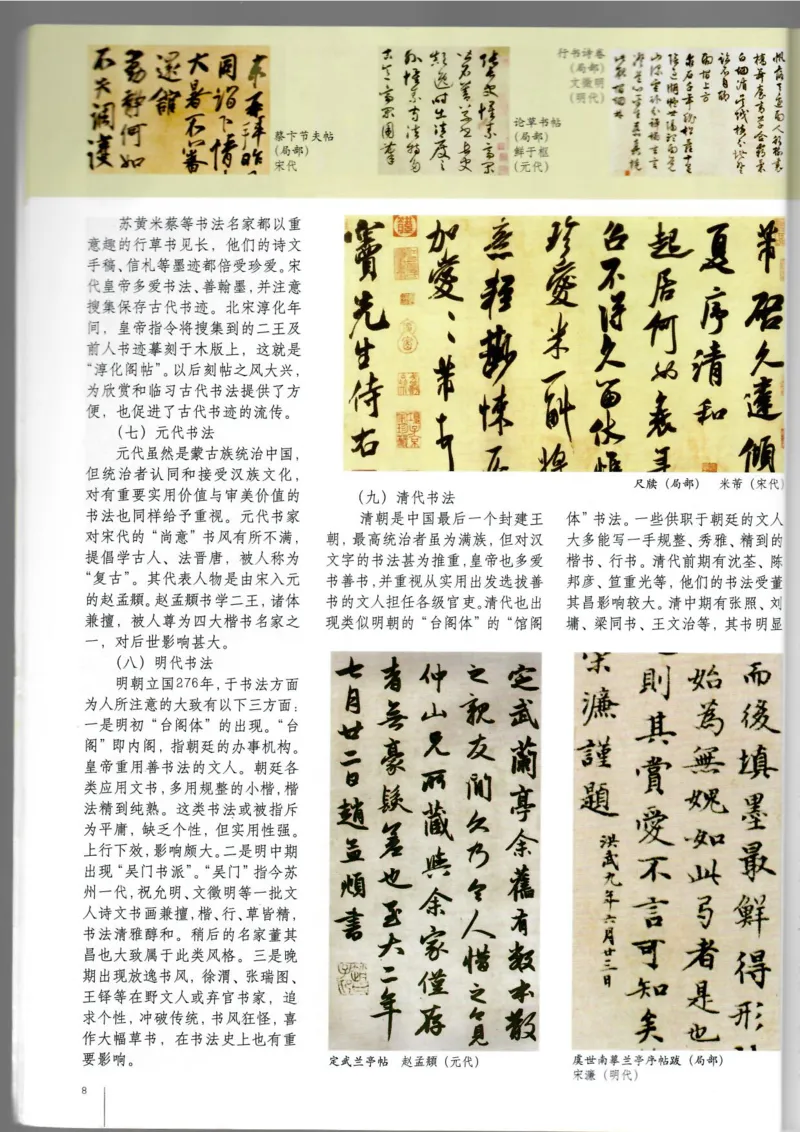 蔡卞节夫帖
(局部)
宋代
论草书帖
(局部)
鲜于枢
(元代)
行书诗卷
(局部)
文徵明
(明代)
苏黄米蔡等书法名家都以重
意趣的行草书见长，他们的诗文
手稿、信札等墨迹都倍受珍爱。宋
代皇帝多爱书法、善翰墨，并注意
搜集保存古代书迹。北宋淳化年
间，皇帝指令将搜集到的二王及
前人书迹摹刻于木版上，这就是
“淳化阁帖”。以后刻帖之风大兴，
为欣赏和临习古代书法提供了方
便，也促进了古代书迹的流传。
(七) 元代书法
元代虽然是蒙古族统治中国，
但统治者认同和接受汉族文化，
对有重要实用价值与审美价值的
书法也同样给予重视。元代书家
对宋代的“尚意”书风有所不满，
提倡学古人、法晋唐，被人称为
“复古”。其代表人物是由宋入元
的赵孟頫。赵孟頫书学二王，诸体
兼擅，被人尊为四大楷书名家之
一，对后世影响甚大。
(八) 明代书法
明朝立国276年，于书法方面
为人所注意的大致有以下三方面：
一是明初“台阁体”的出现。“台
阁”即内阁，指朝廷的办事机构。
皇帝重用善书法的文人。朝廷各
类应用文书，多用规整的小楷，楷
法精到纯熟。这类书法或被指斥
为平庸，缺乏个性，但实用性强。
上行下效，影响颇大。二是明中期
出现“吴门书派”。“吴门”指今苏
州一代，祝允明、文徵明等一批文
人诗文书画兼擅，楷、行、草皆精，
书法清雅醇和。稍后的名家董其
昌也大致属于此类风格。三是晚
期出现放逸书风，徐渭、张瑞图、
王铎等在野文人或弃官书家，追
求个性，冲破传统，书风狂怪，喜
作大幅草书，在书法史上也有重
要影响。
芾启久违倾
夏序清和
起居何如衰年
尺牍 (局部)　米芾 (宋代)
(九) 清代书法
清朝是中国最后一个封建王
朝，最高统治者虽为满族，但对汉
文字的书法甚为推重，皇帝也多爱
书善书，并重视从实用出发选拔善
书的文人担任各级官吏。清代也出
现类似明朝的“台阁体”的“馆阁
体”书法。一些供职于朝廷的文人
大多能写一手规整、秀雅、精到的
楷书、行书。清代前期有沈荃、陈
邦彦、笪重光等，他们的书法受董
其昌影响较大。清中期有张照、刘
墉、梁同书、王文治等，其书明显
定武蘭亭余舊有數本散
之親友間久乃令人惜之見
仲山兄所藏與余家僅存
者無豪髮差也至大二年
七月廿二日趙孟頫書
定武兰亭帖　赵孟頫 (元代)
而後填墨最鮮得形
始為無媿如此弓者是也
則其賞愛不言可知矣
宋濂謹題
洪武九年六月廿三日
虞世南摹兰亭序帖跋 (局部)
宋濂 (明代)
8